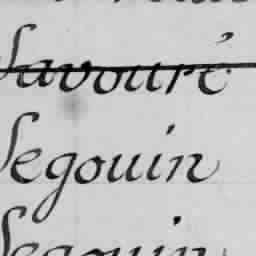 Savouré
Segouin
Segouin